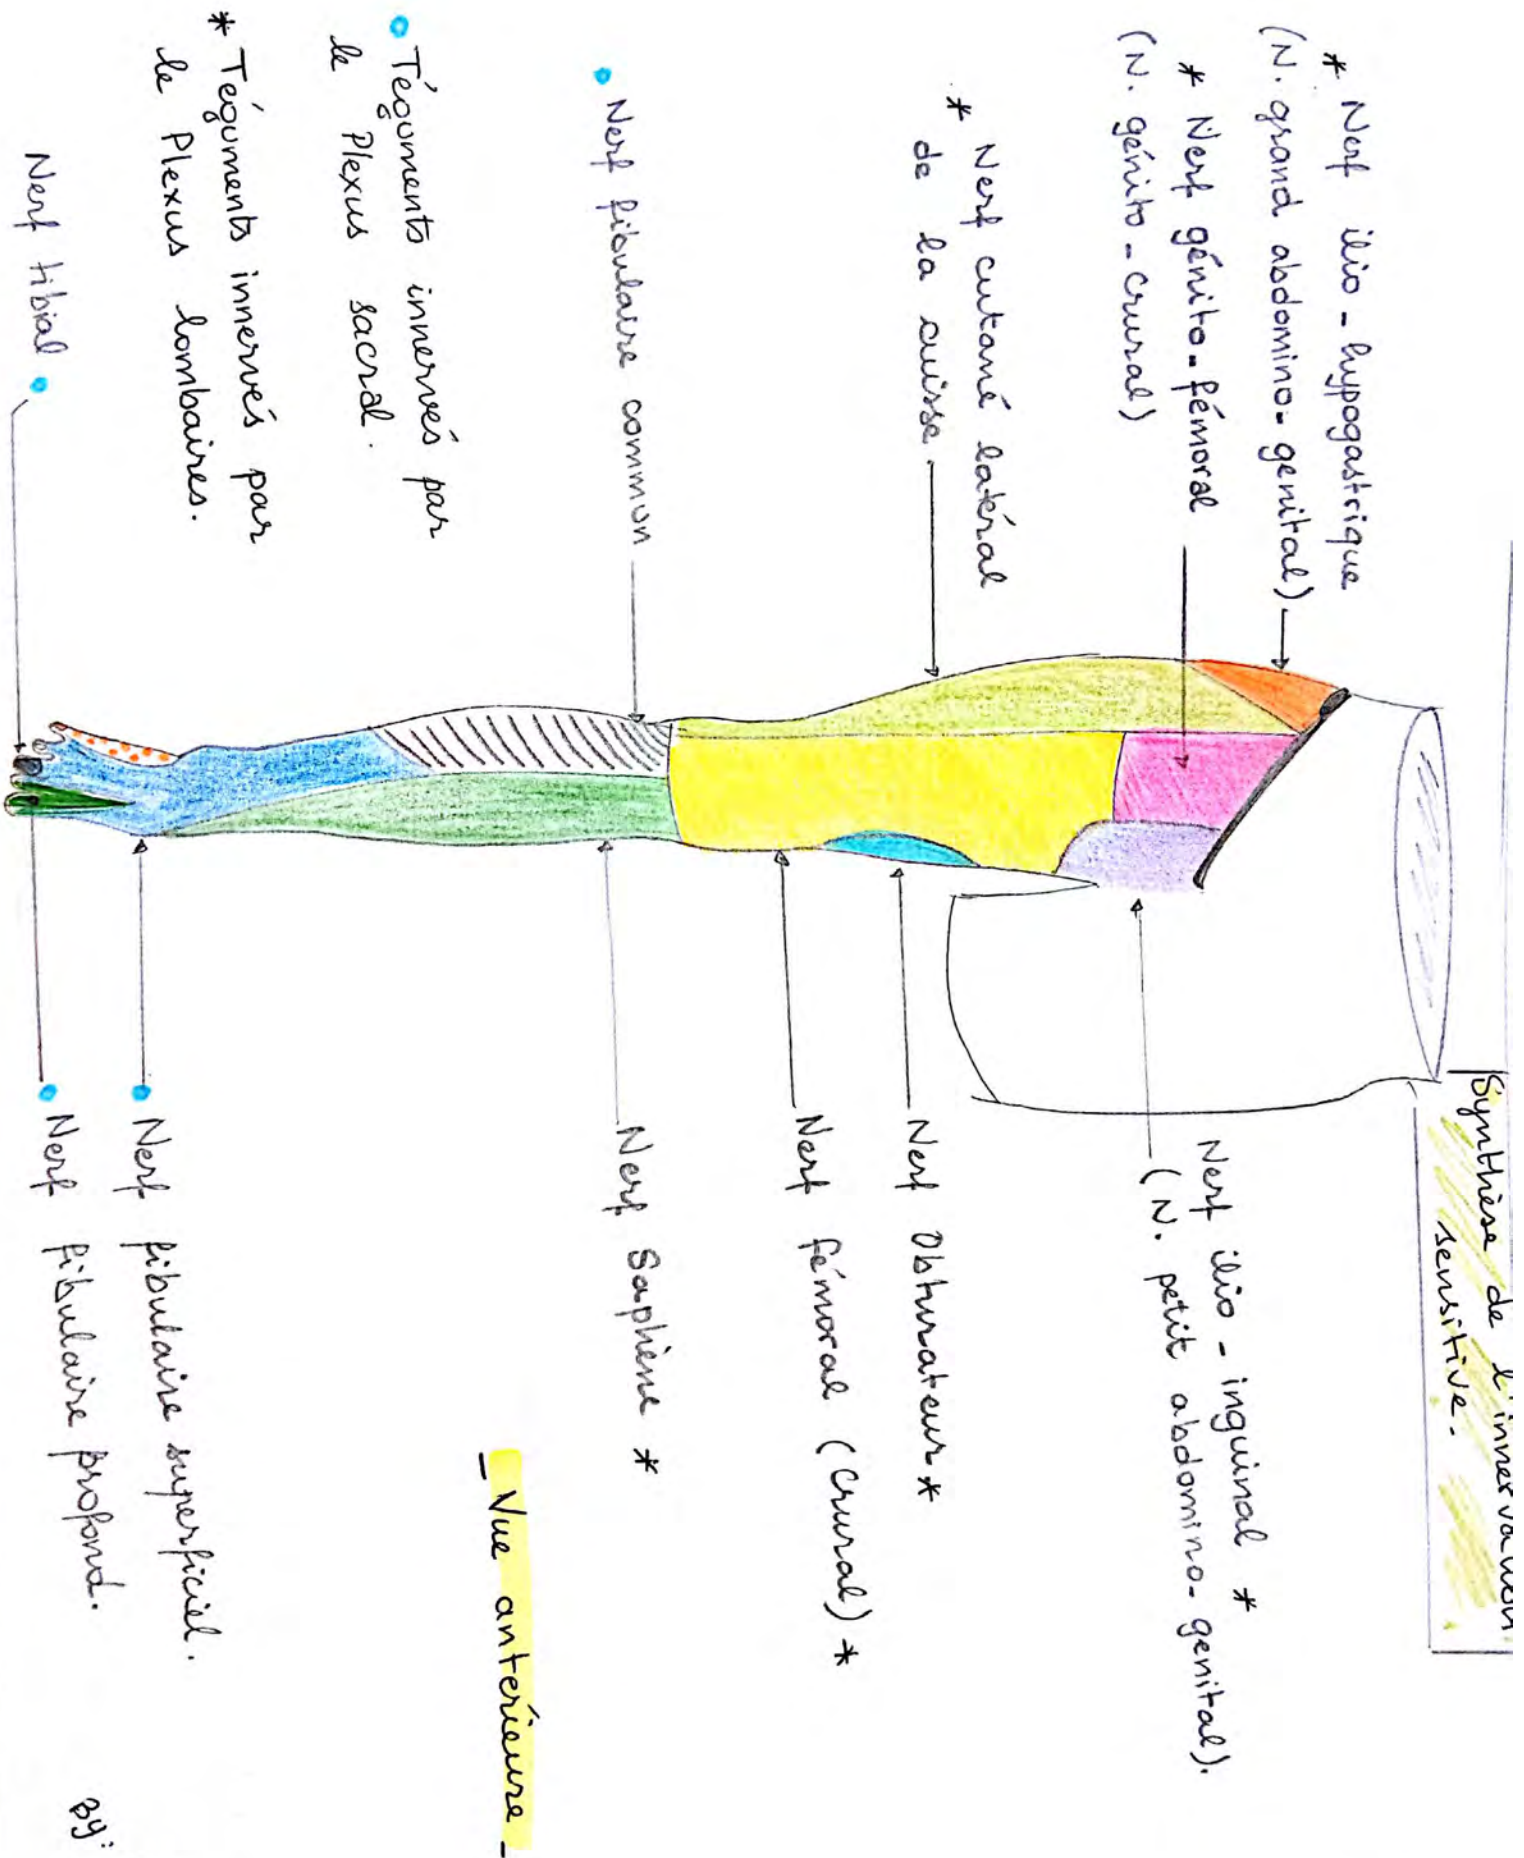 Synthèse de l'innervation
sensitive.
* Nerf ilio-hypogastrique
(N. grand abdomino-genital).
* Nerf génito-fémoral
(N. génito-crural)
* Nerf cutané latéral
de la cuisse.
• Nerf fibulaire commun
• Téguments innervés par
le Plexus sacral.
* Téguments innervés par
le Plexus lombaires.
Nerf tibial •
Nerf ilio-inguinal *
(N. petit abdomino-genital).
Nerf Obturateur *
Nerf fémoral (Crural) *
Nerf Saphène *
_ Vue anterieure _
• Nerf fibulaire superficiel.
• Nerf fibulaire profond.
By: